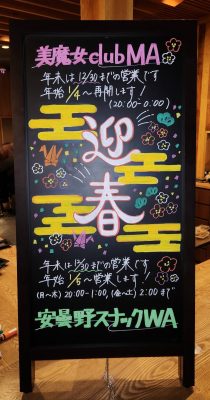 美魔女clubMA
年末は12/30までの営業です
年始1/4～再開します！
(20:00-0:00)
迎春
年末は12/30までの営業です
年始1/6～営業します！
(月～木)20:00-1:00,(金～土)2:00まで
安曇野スナックWA